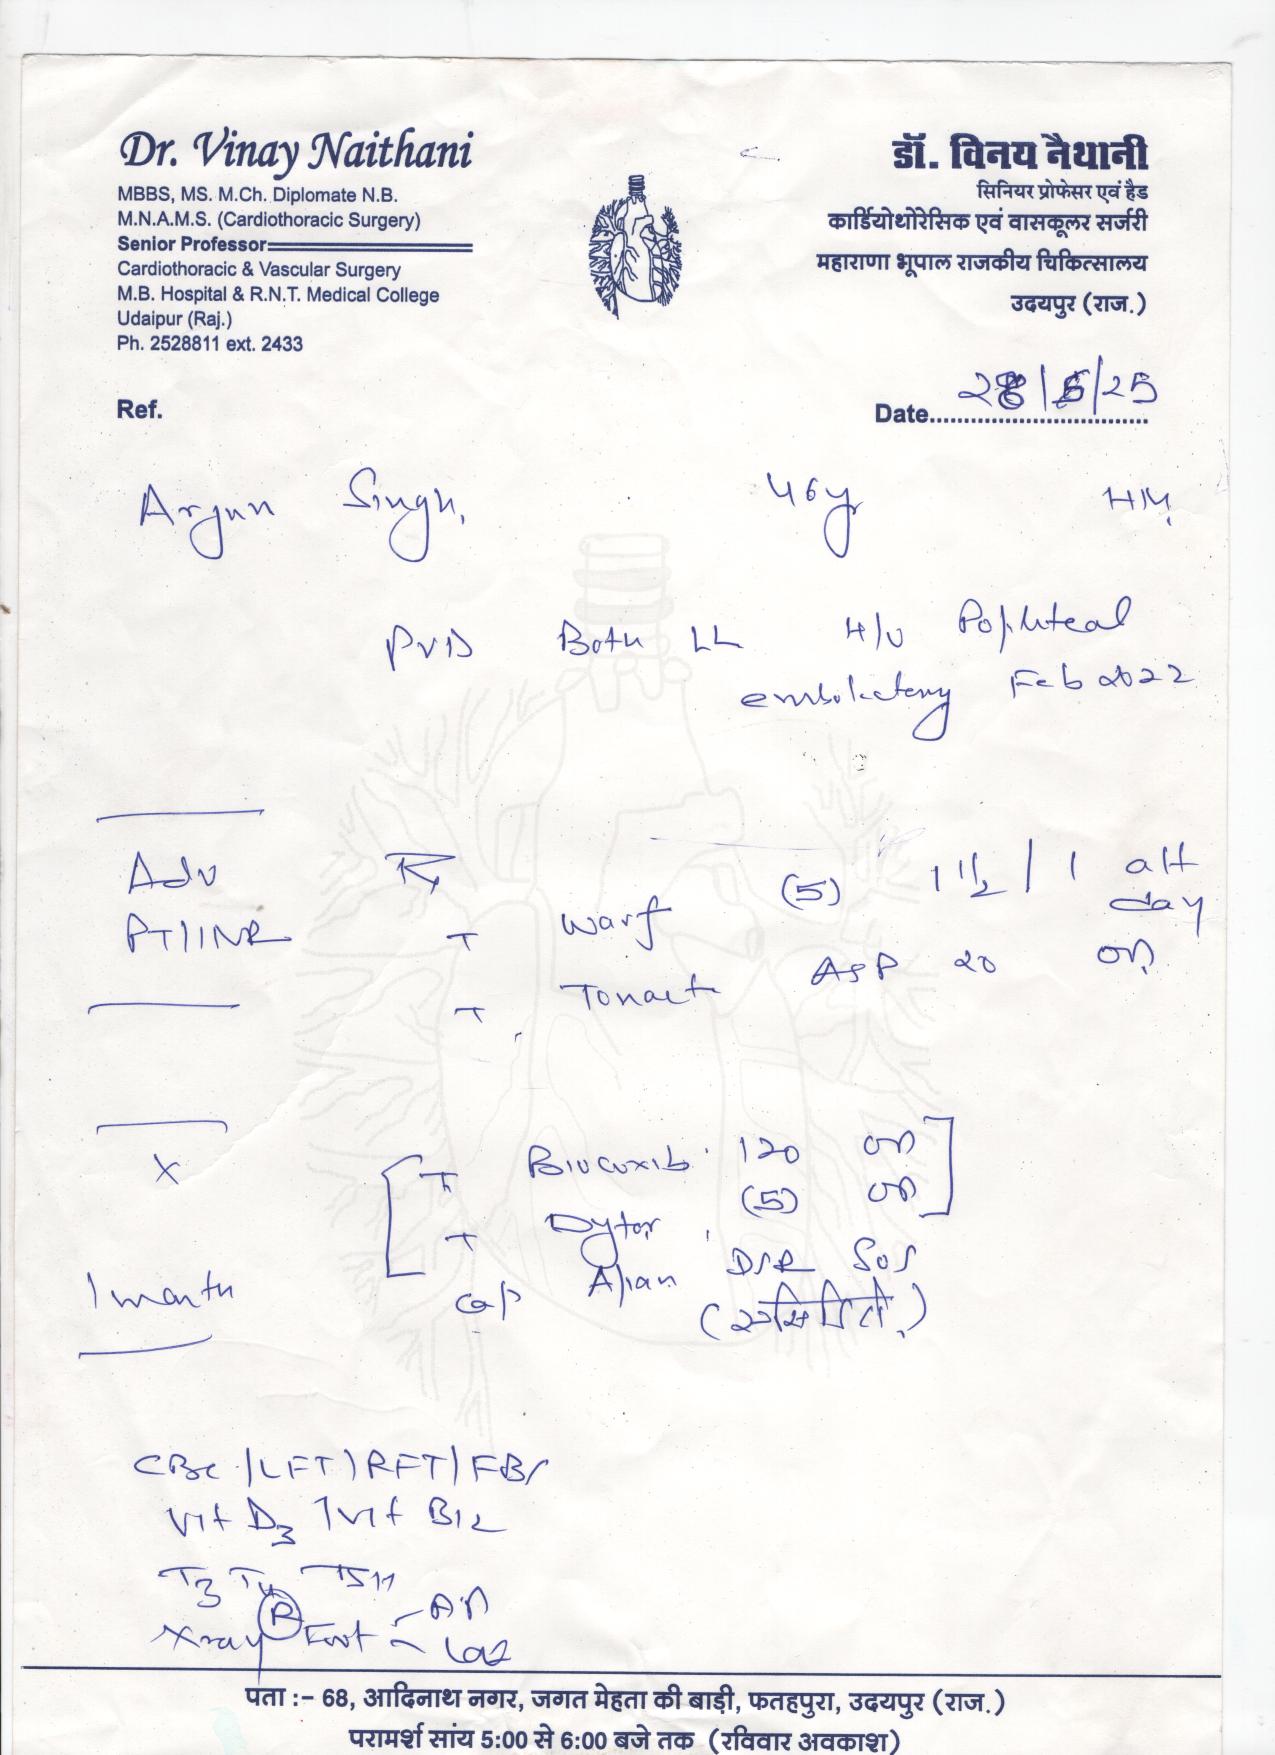 Dr. Vinay Naithani
MBBS, MS. M.Ch. Diplomate N.B.
M.N.A.M.S. (Cardiothoracic Surgery)
Senior Professor
Cardiothoracic & Vascular Surgery
M.B. Hospital & R.N.T. Medical College
Udaipur (Raj.)
Ph. 2528811 ext. 2433
डॉ. विनय नैथानी
सिनियर प्रोफेसर एवं हैड
कार्डियोथोरेसिक एवं वासकूलर सर्जरी
महाराणा भूपाल राजकीय चिकित्सालय
उदयपुर (राज.)
Ref.
Date 28/5/25
Arjun Singh, 46yr HM.
PVD Both LL H/o Popliteal
embolectomy Feb 2022
Adv Rx
T Warf (5) 1 1/2 / 1 alt day
PT/INR
T Tonact ASP 20 OD
X
T Biocoxib 120 OD
T Dytor (5) OD
1 month
Cap DSR SOS
CBC/LFT/RFT/FBS
Vit D3/Vit B12
T3 T4 TSH
Xray R Foot AP
Lat
पता :- 68, आदिनाथ नगर, जगत मेहता की बाड़ी, फतहपुरा, उदयपुर (राज.)
परामर्श सांय 5:00 से 6:00 बजे तक (रविवार अवकाश)